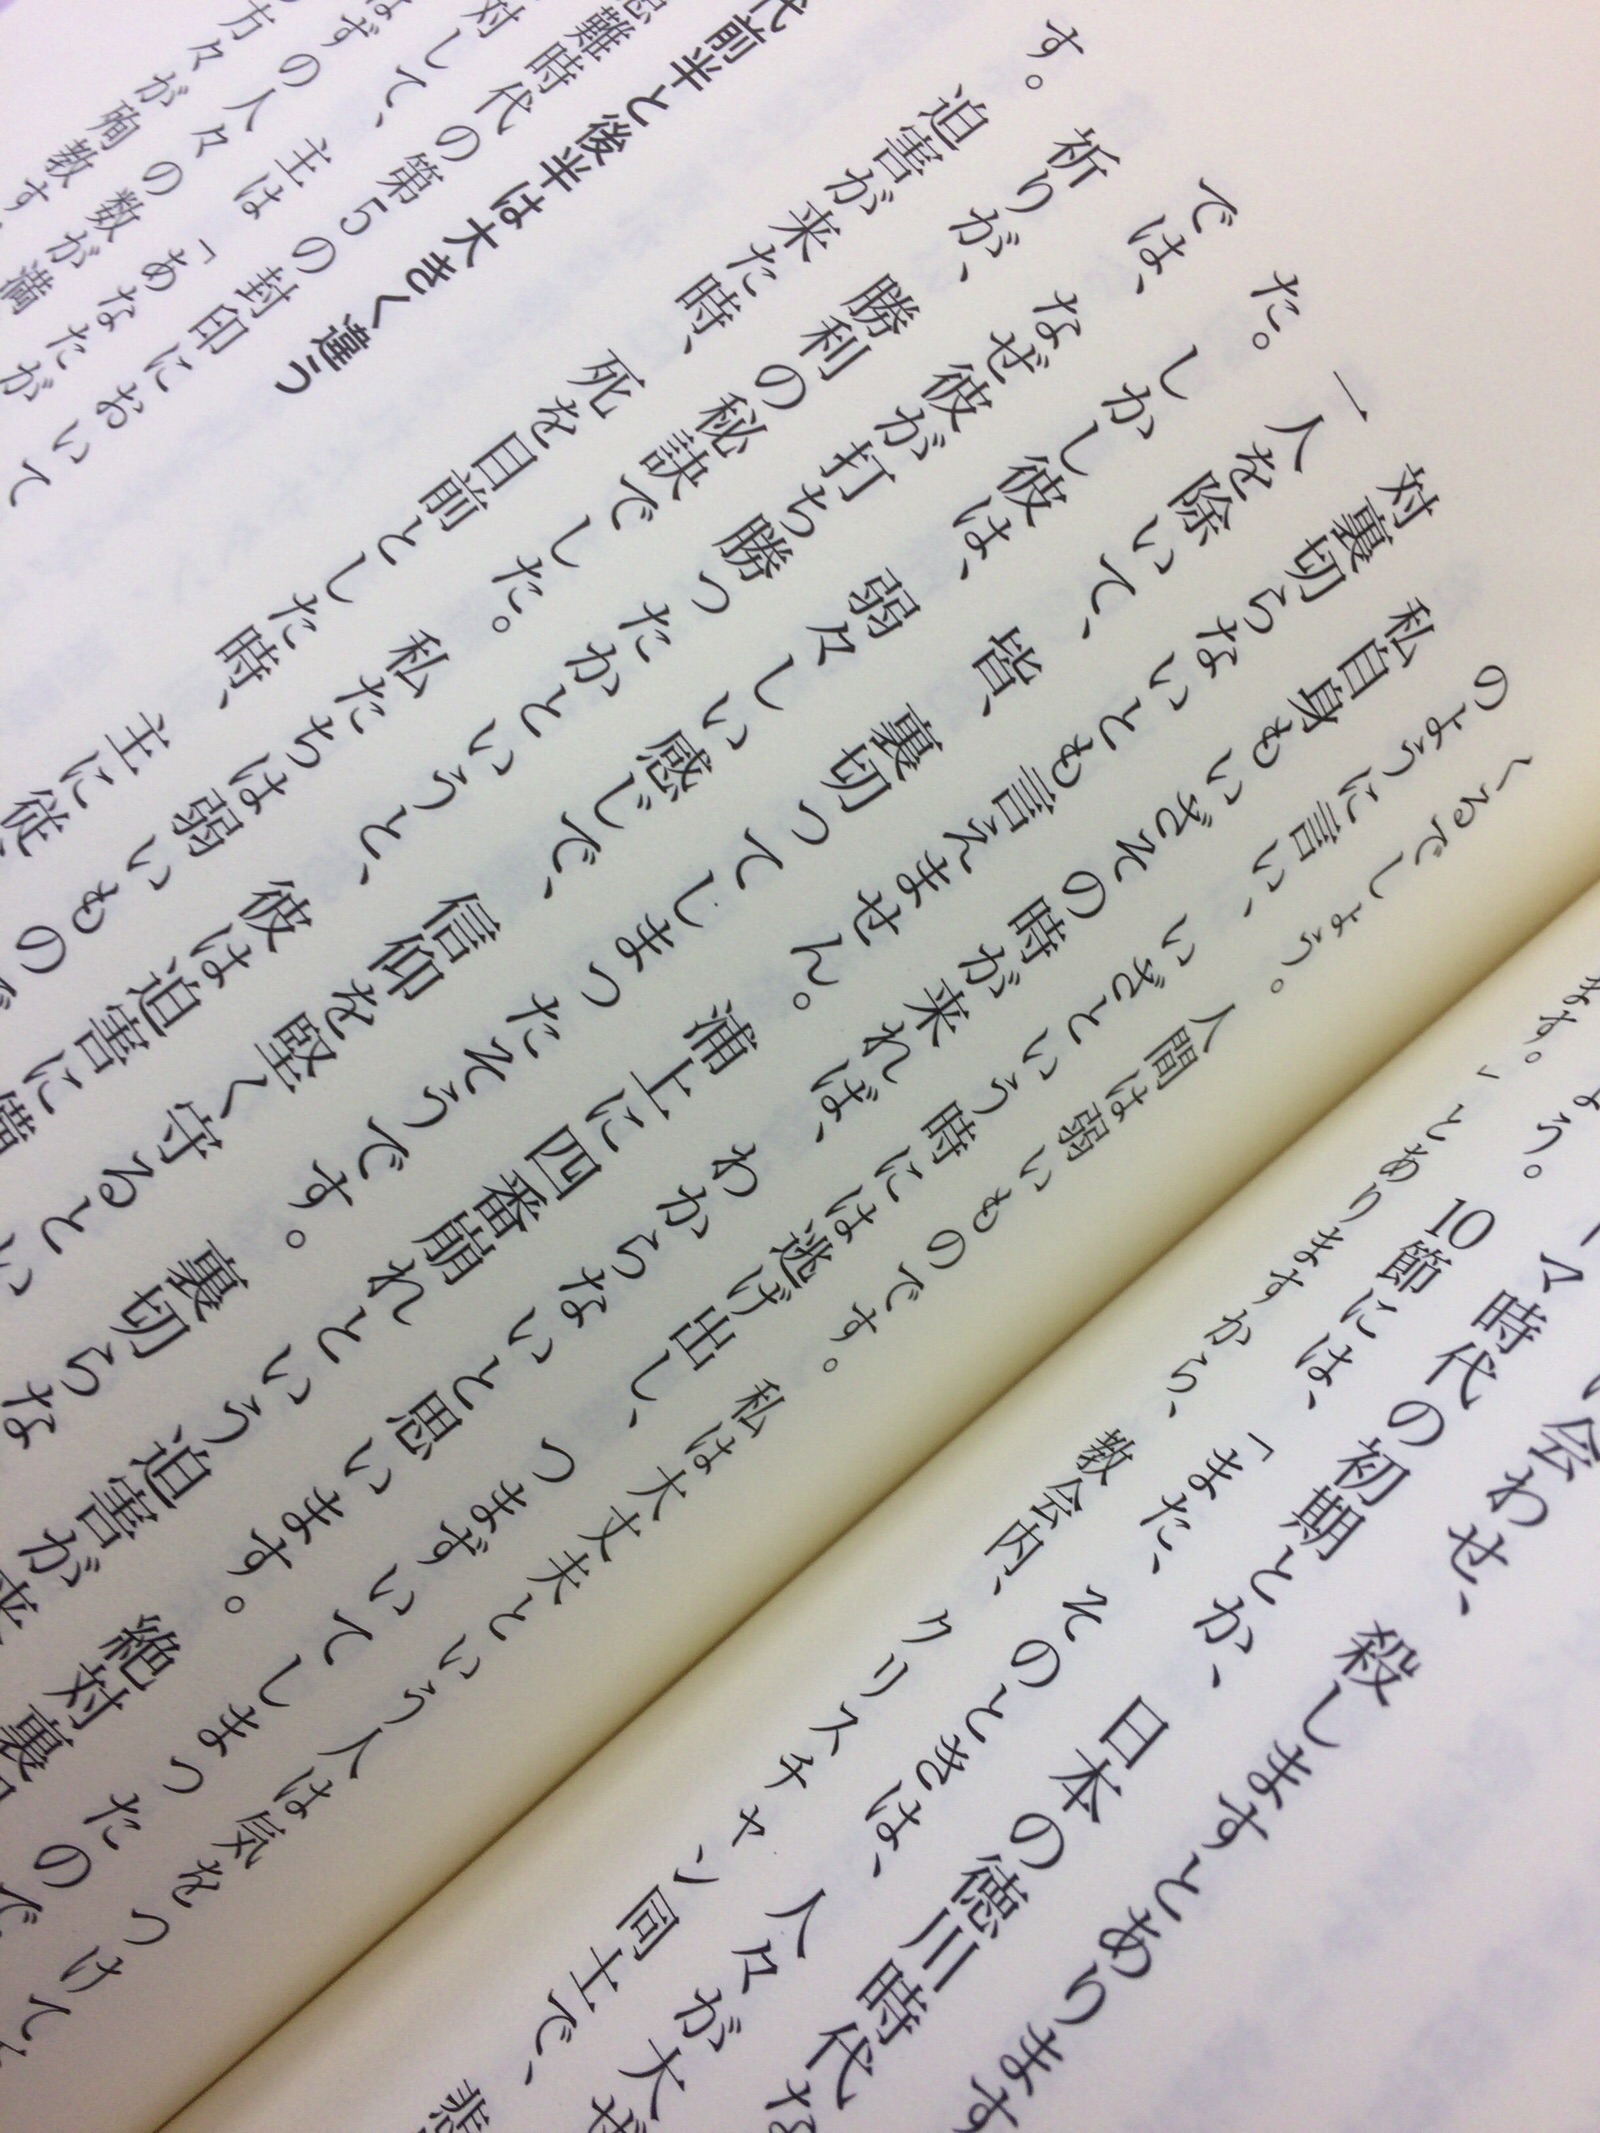 い会わせ、殺しますとあります
ーマ時代の初期とか、日本の徳川時代な
よう。10節には、「また、そのときは、人々が大ぜ
ます。」とありますから、教会内、クリスチャン同士で、悲
くるでしょう。人間は弱いものです。私は大丈夫という人は気をつけて
のように言い、いざという時には逃げ出し、つまずいてしまったので
私自身もいざその時が来れば、わからないと思います。絶対裏切
対裏切らないとも言えません。浦上に四番崩れという迫害が来
一人を除いて、皆、裏切ってしまったそうです。裏切らな
た。しかし彼は、弱々しい感じで、信仰を堅く守るとい
では、なぜ彼が打ち勝ったかというと、彼は迫害に備
祈りが、勝利の秘訣でした。私たちは弱いもので
す。迫害が来た時、死を目前とした時、主に従
代前半と後半は大きく違う
患難時代の第5の封印において
対して、主は「あなたが
はずの人々の数が満
方々が殉教す